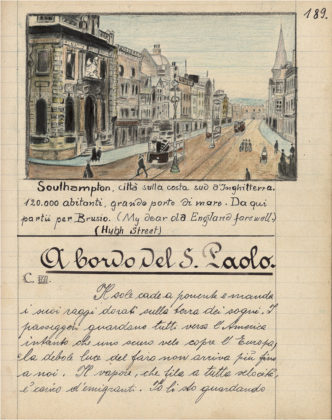 189.
Southampton, città sulla costa sud d'Inghilterra.
120.000 abitanti, grande porto di mare. Da qui
partii per Brusio. (My dear old England farewell.)
(Hygh Street)
A bordo del S. Paolo.
C. III.
Il sole cade a ponente e manda
i suoi raggi dorati sulla terra dei sogni. I
passeggeri guardano tutti verso l'America
intanto che uno scuro velo copre l'Europa,
la debole luce del faro non arriva più fino
a noi. Il vapore, che fila a tutta velocità
è carico d'emigranti. Io li sto guardando